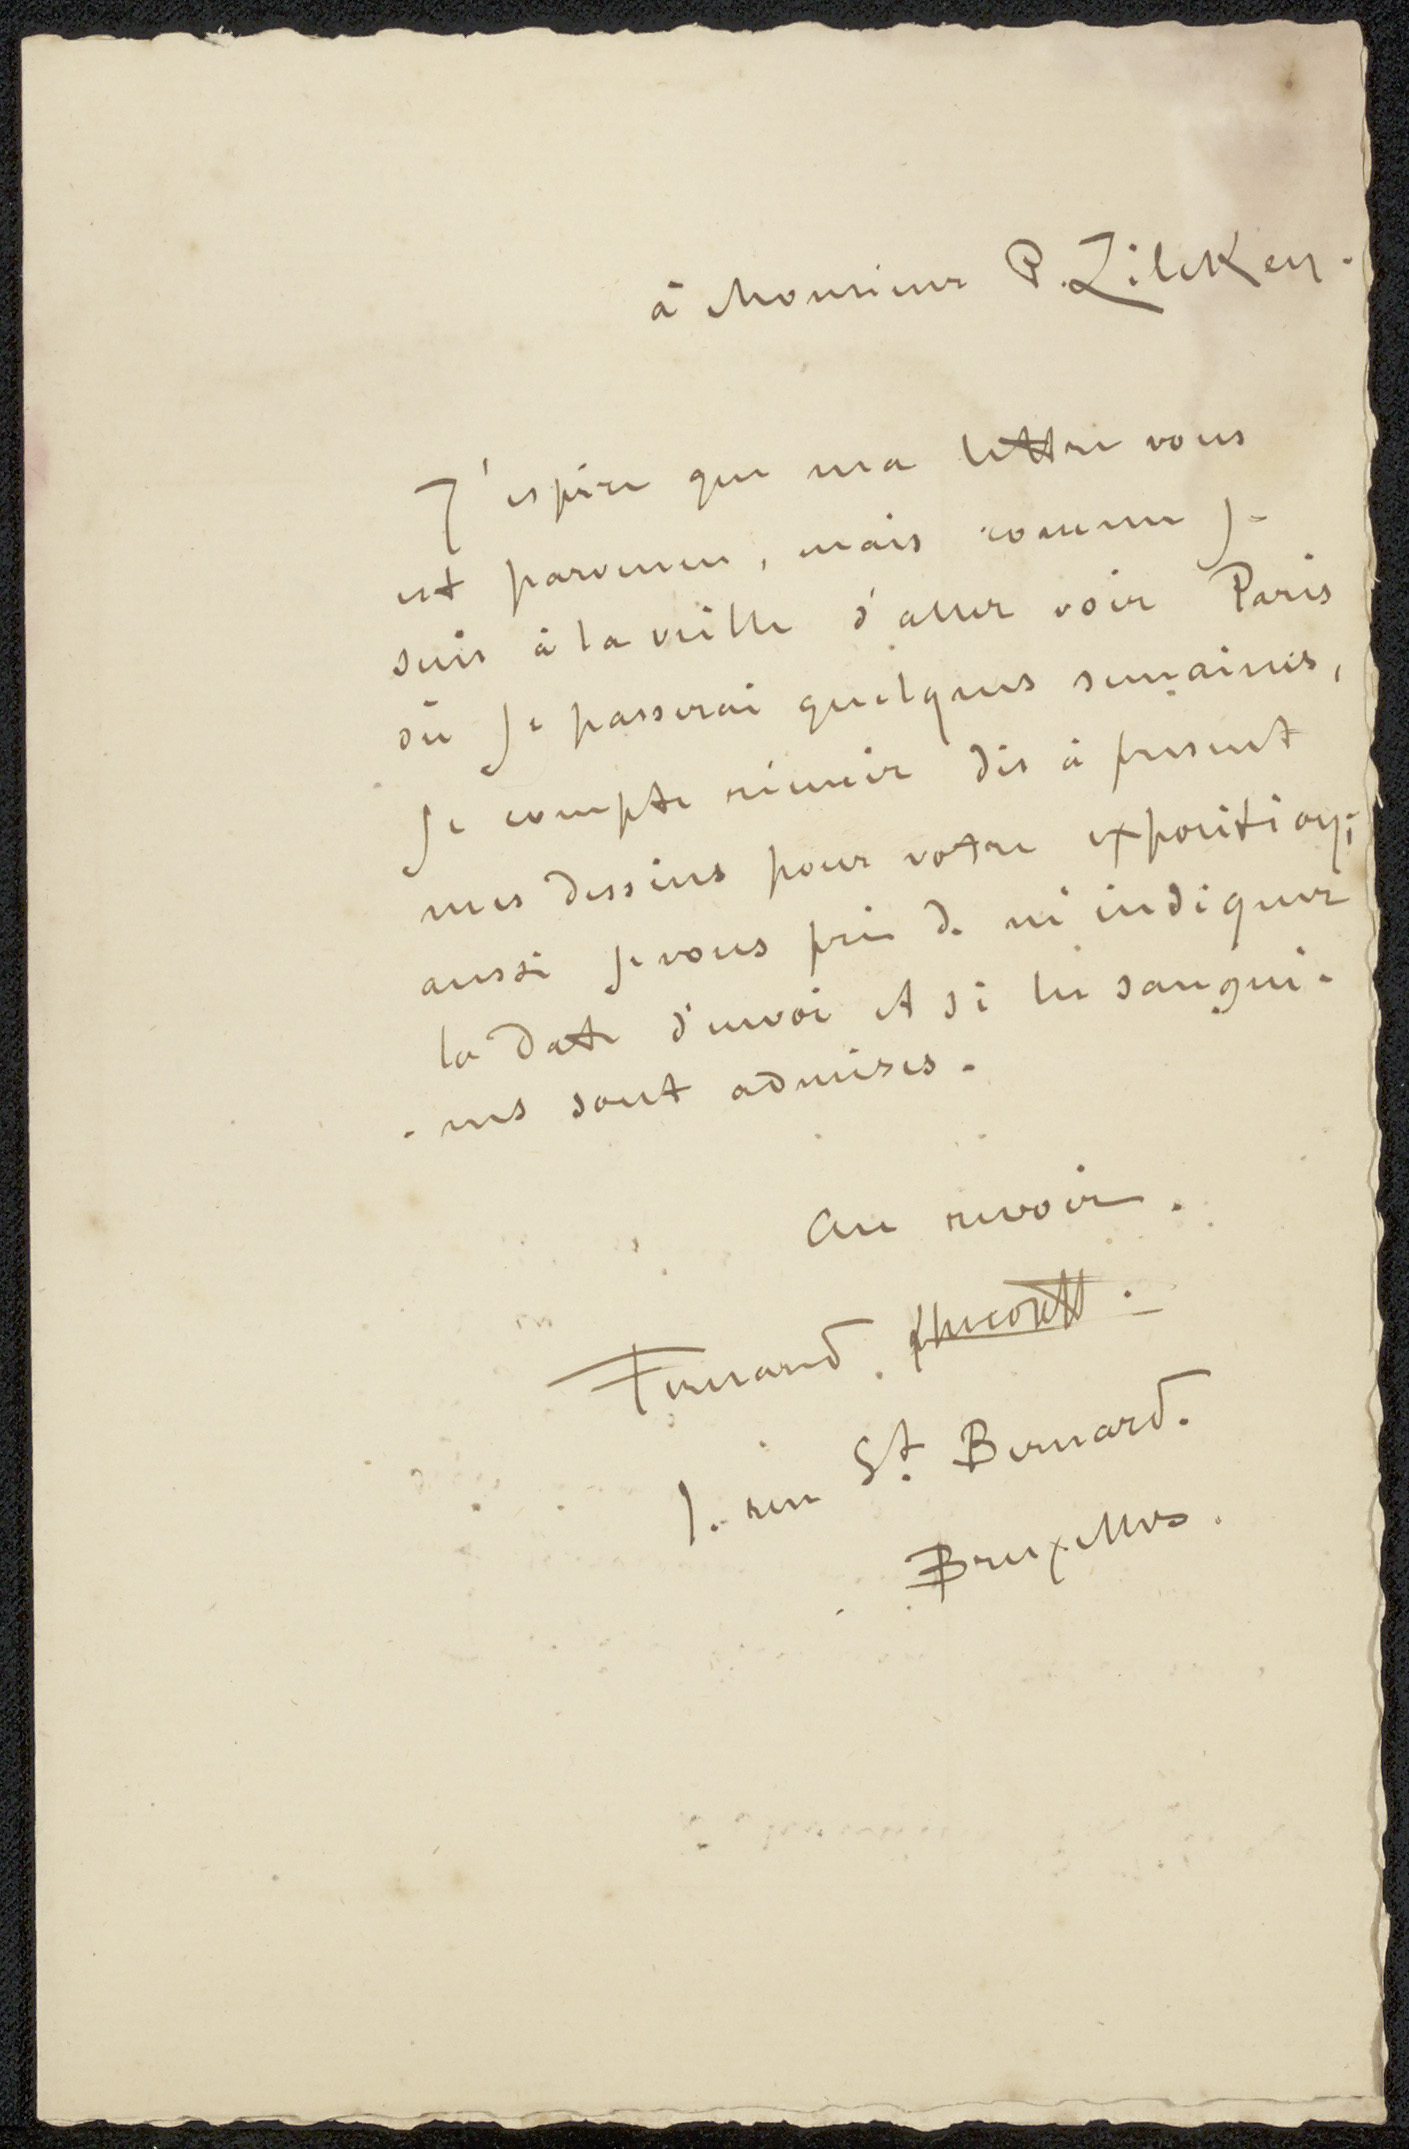 à Monsieur P. Zilcken.
J'espère que ma lettre vous
est parvenue, mais comme je
suis à la veille d'aller voir Paris
où je passerai quelques semaines,
je compte réunir dès à présent
mes dessins pour votre exposition;
aussi je vous prie de m'indiquer
la date d'envoi et si les sangui-
-nes sont admises.
Au revoir.
Fernand
1. rue St. Bernard.
Bruxelles.